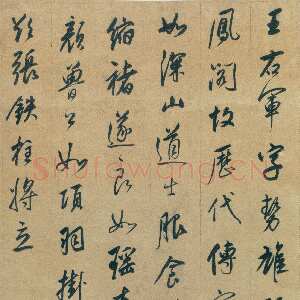 王右軍字勢雄
鳳閣故歷代傳
如深山道士服食
縮褚遂良如瑤
顏魯公如項羽掛
欲張鐵柱將立
Shufawang.CN